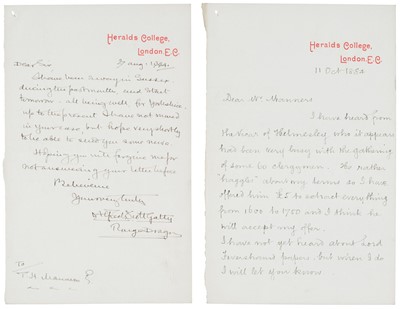 Heralds College,
London, E.C.
Aug. 1894.
Dear Sir
I have been away in Sussex
during the past month, and start
tomorrow – all being well for Yorkshire.
up to the present I have not moved
in your case, but hope very shortly
to be able to send you some news.
Hoping you will forgive me for
not answering your letter before
Believe me
Yours very truly
Alfred Scott Gatty
Rouge Dragon
To
Heralds College,
London, E.C.
11 Oct 1894
Dear Mr Manners
I have heard from
the Vicar of Helmesley who it appears
had been very busy with the gathering
of some 60 clergymen. He rather
"haggles" about my terms so I have
offered him £5 to extract everything
from 1600 to 1750 and I think he
will accept my offer.
I have not yet heard about Lord
papers but when I do
I will let you know.